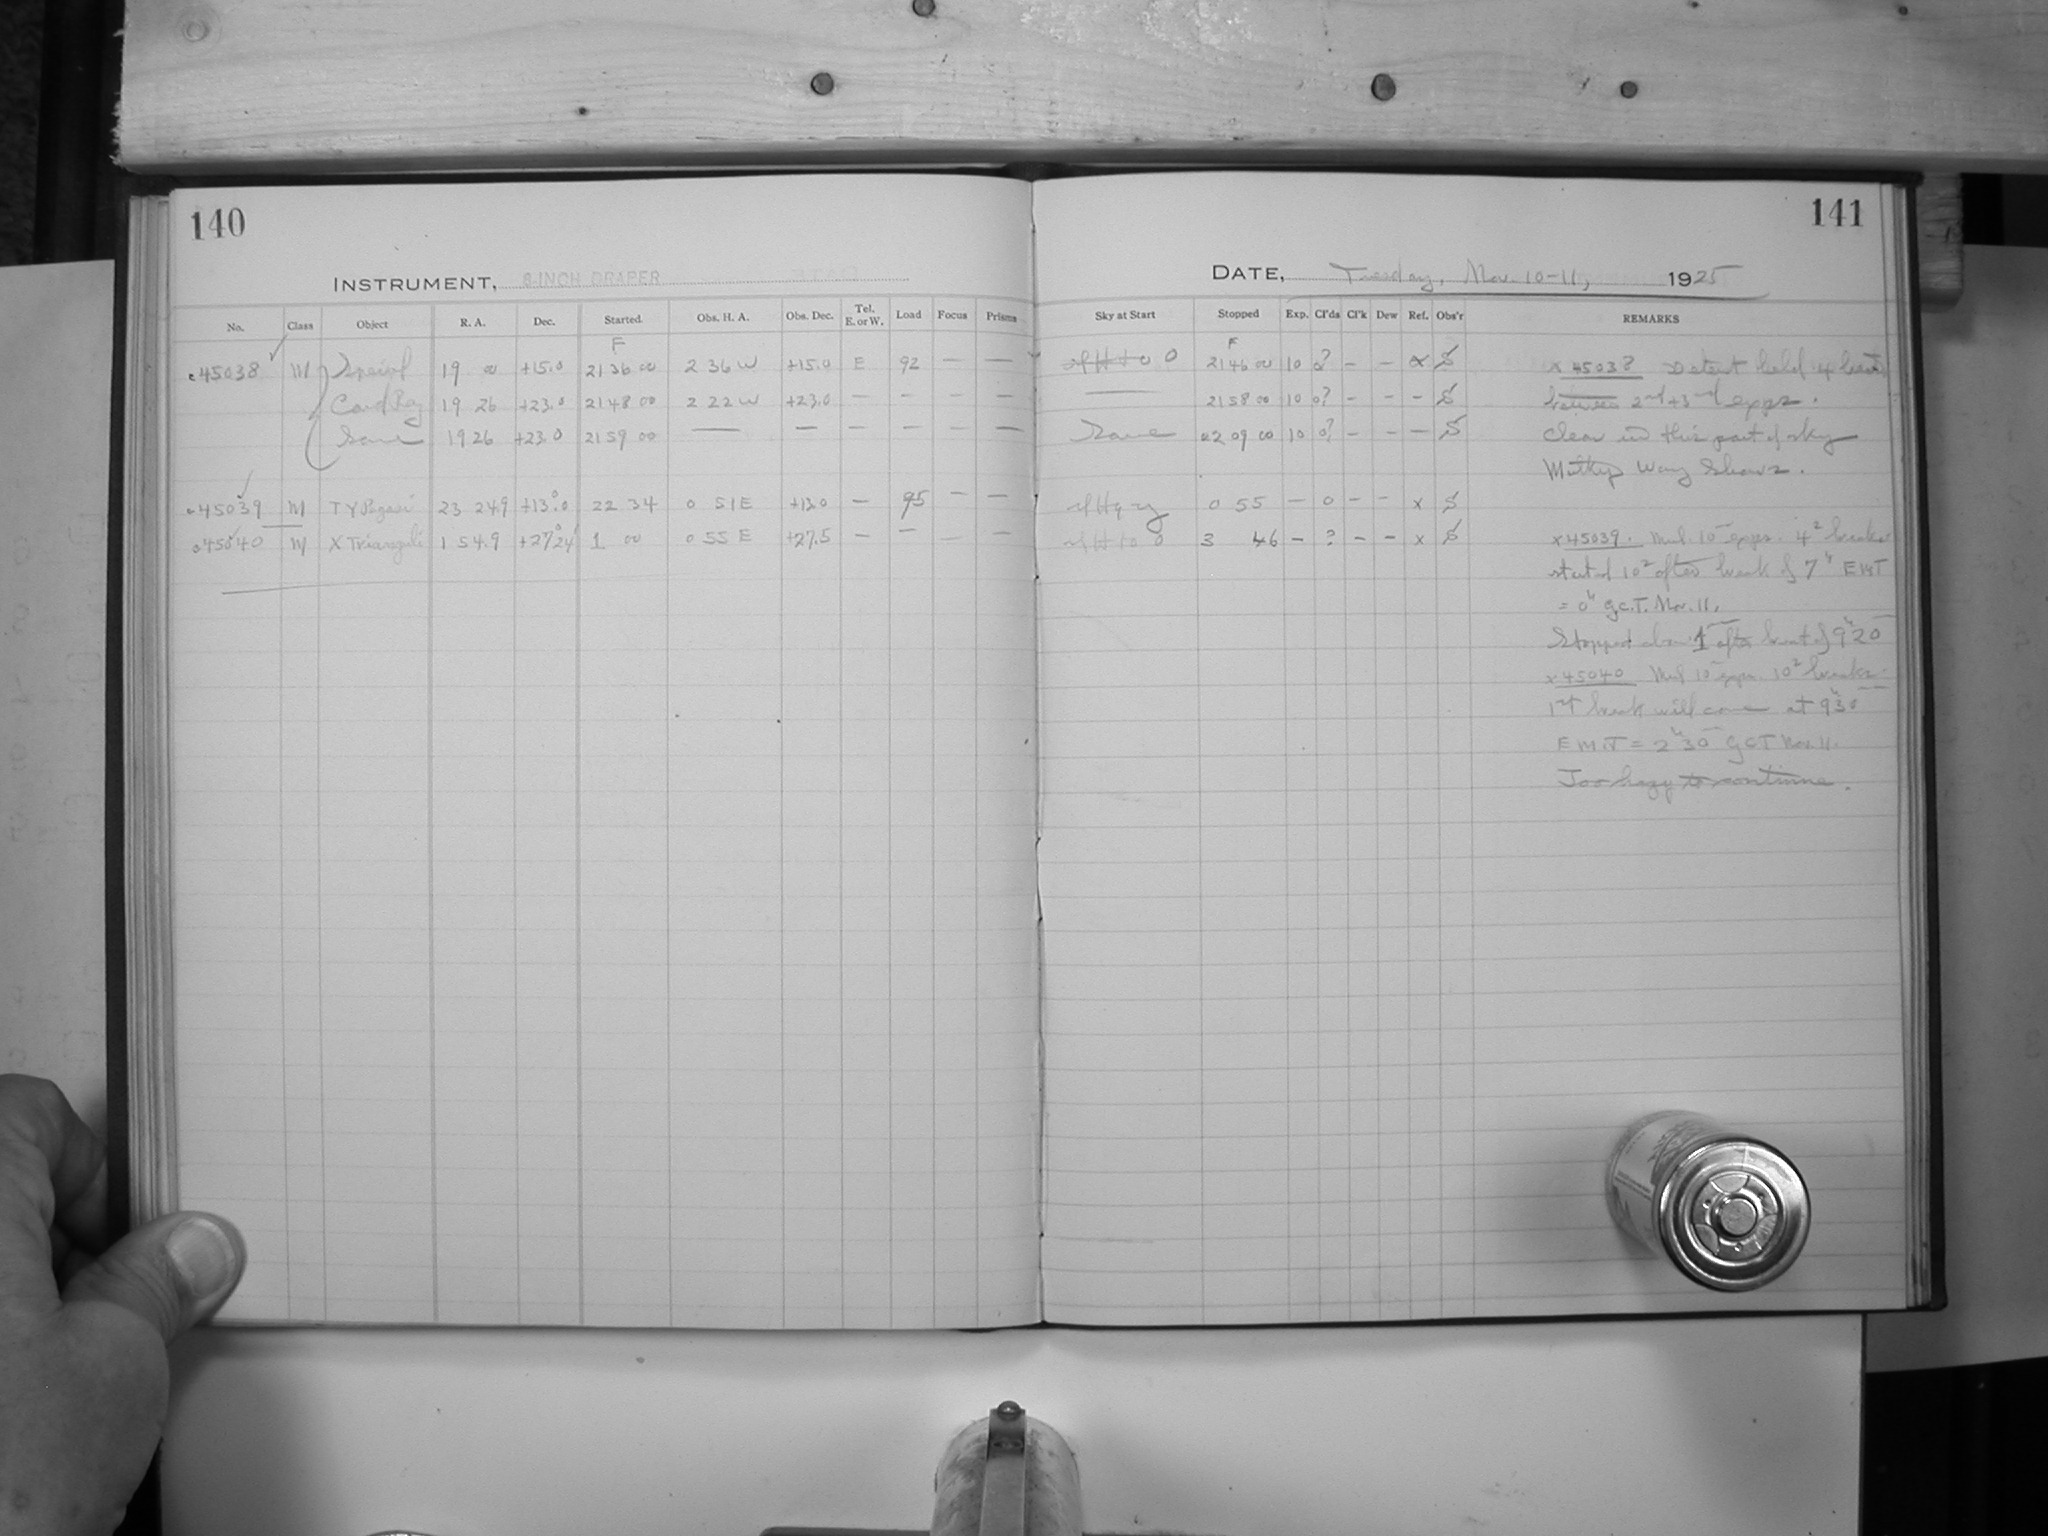 140
INSTRUMENT, 8-INCH DRAPER
No. Class Object R. A. Dec. Started Obs. H. A. Obs. Dec. Tel. E. or W. Load Focus Prisms
F
45038 M 19 00 +15.0 21 36 00 2 36 W +15.0 E 92 — —
19 26 +23.0 21 48 00 2 22 W +23.0 — — — —
Same 19 26 +23.0 21 59 00 — — — — — —
45039 M TY Pegasi 23 24.9 +13°.0 22 34 0 51 E +13.0 — 95 — —
45040 M X Trianguli 1 54.9 +27°24' 1 00 0 55 E +27.5 — — — —
141
DATE, Tuesday, Nov. 10-11, 1925
Sky at Start Stopped Exp. Cl'ds Cl'k Dew Ref. Obs'r REMARKS
F
21 46 00 10 0? — — x
— 21 58 00 10 0? — — —
Same 22 09 00 10 0? — — —
0 55 — 0 — — x
3 46 — ? — — x
x 45038 Detent held up
between 2nd + 3rd exps.
Clear in this part of sky
Milky Way shows.
x 45039. Mul. 10m exps. 4s breaks
started 10s after break of 7h EMT
= 0h G.C.T. Nov. 11.
Stopped 1m after break of 9h20m
x 45040 Mul 10m exps. 10s breaks.
1st break will come at 9h30m
EMT = 2h30m GCT Nov. 11.
Too hazy to continue.